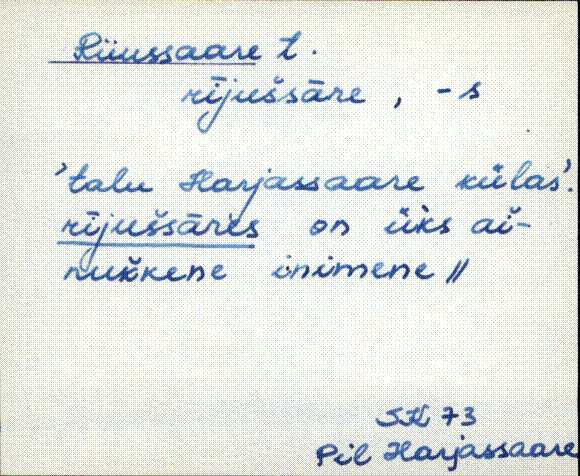 Riiussaare t.
rījušsāre, -s
'talu Harjassaare külas'.
rījušsāres on üks ai-
nukkene inimene //
SK 73
Pil Harjassaare